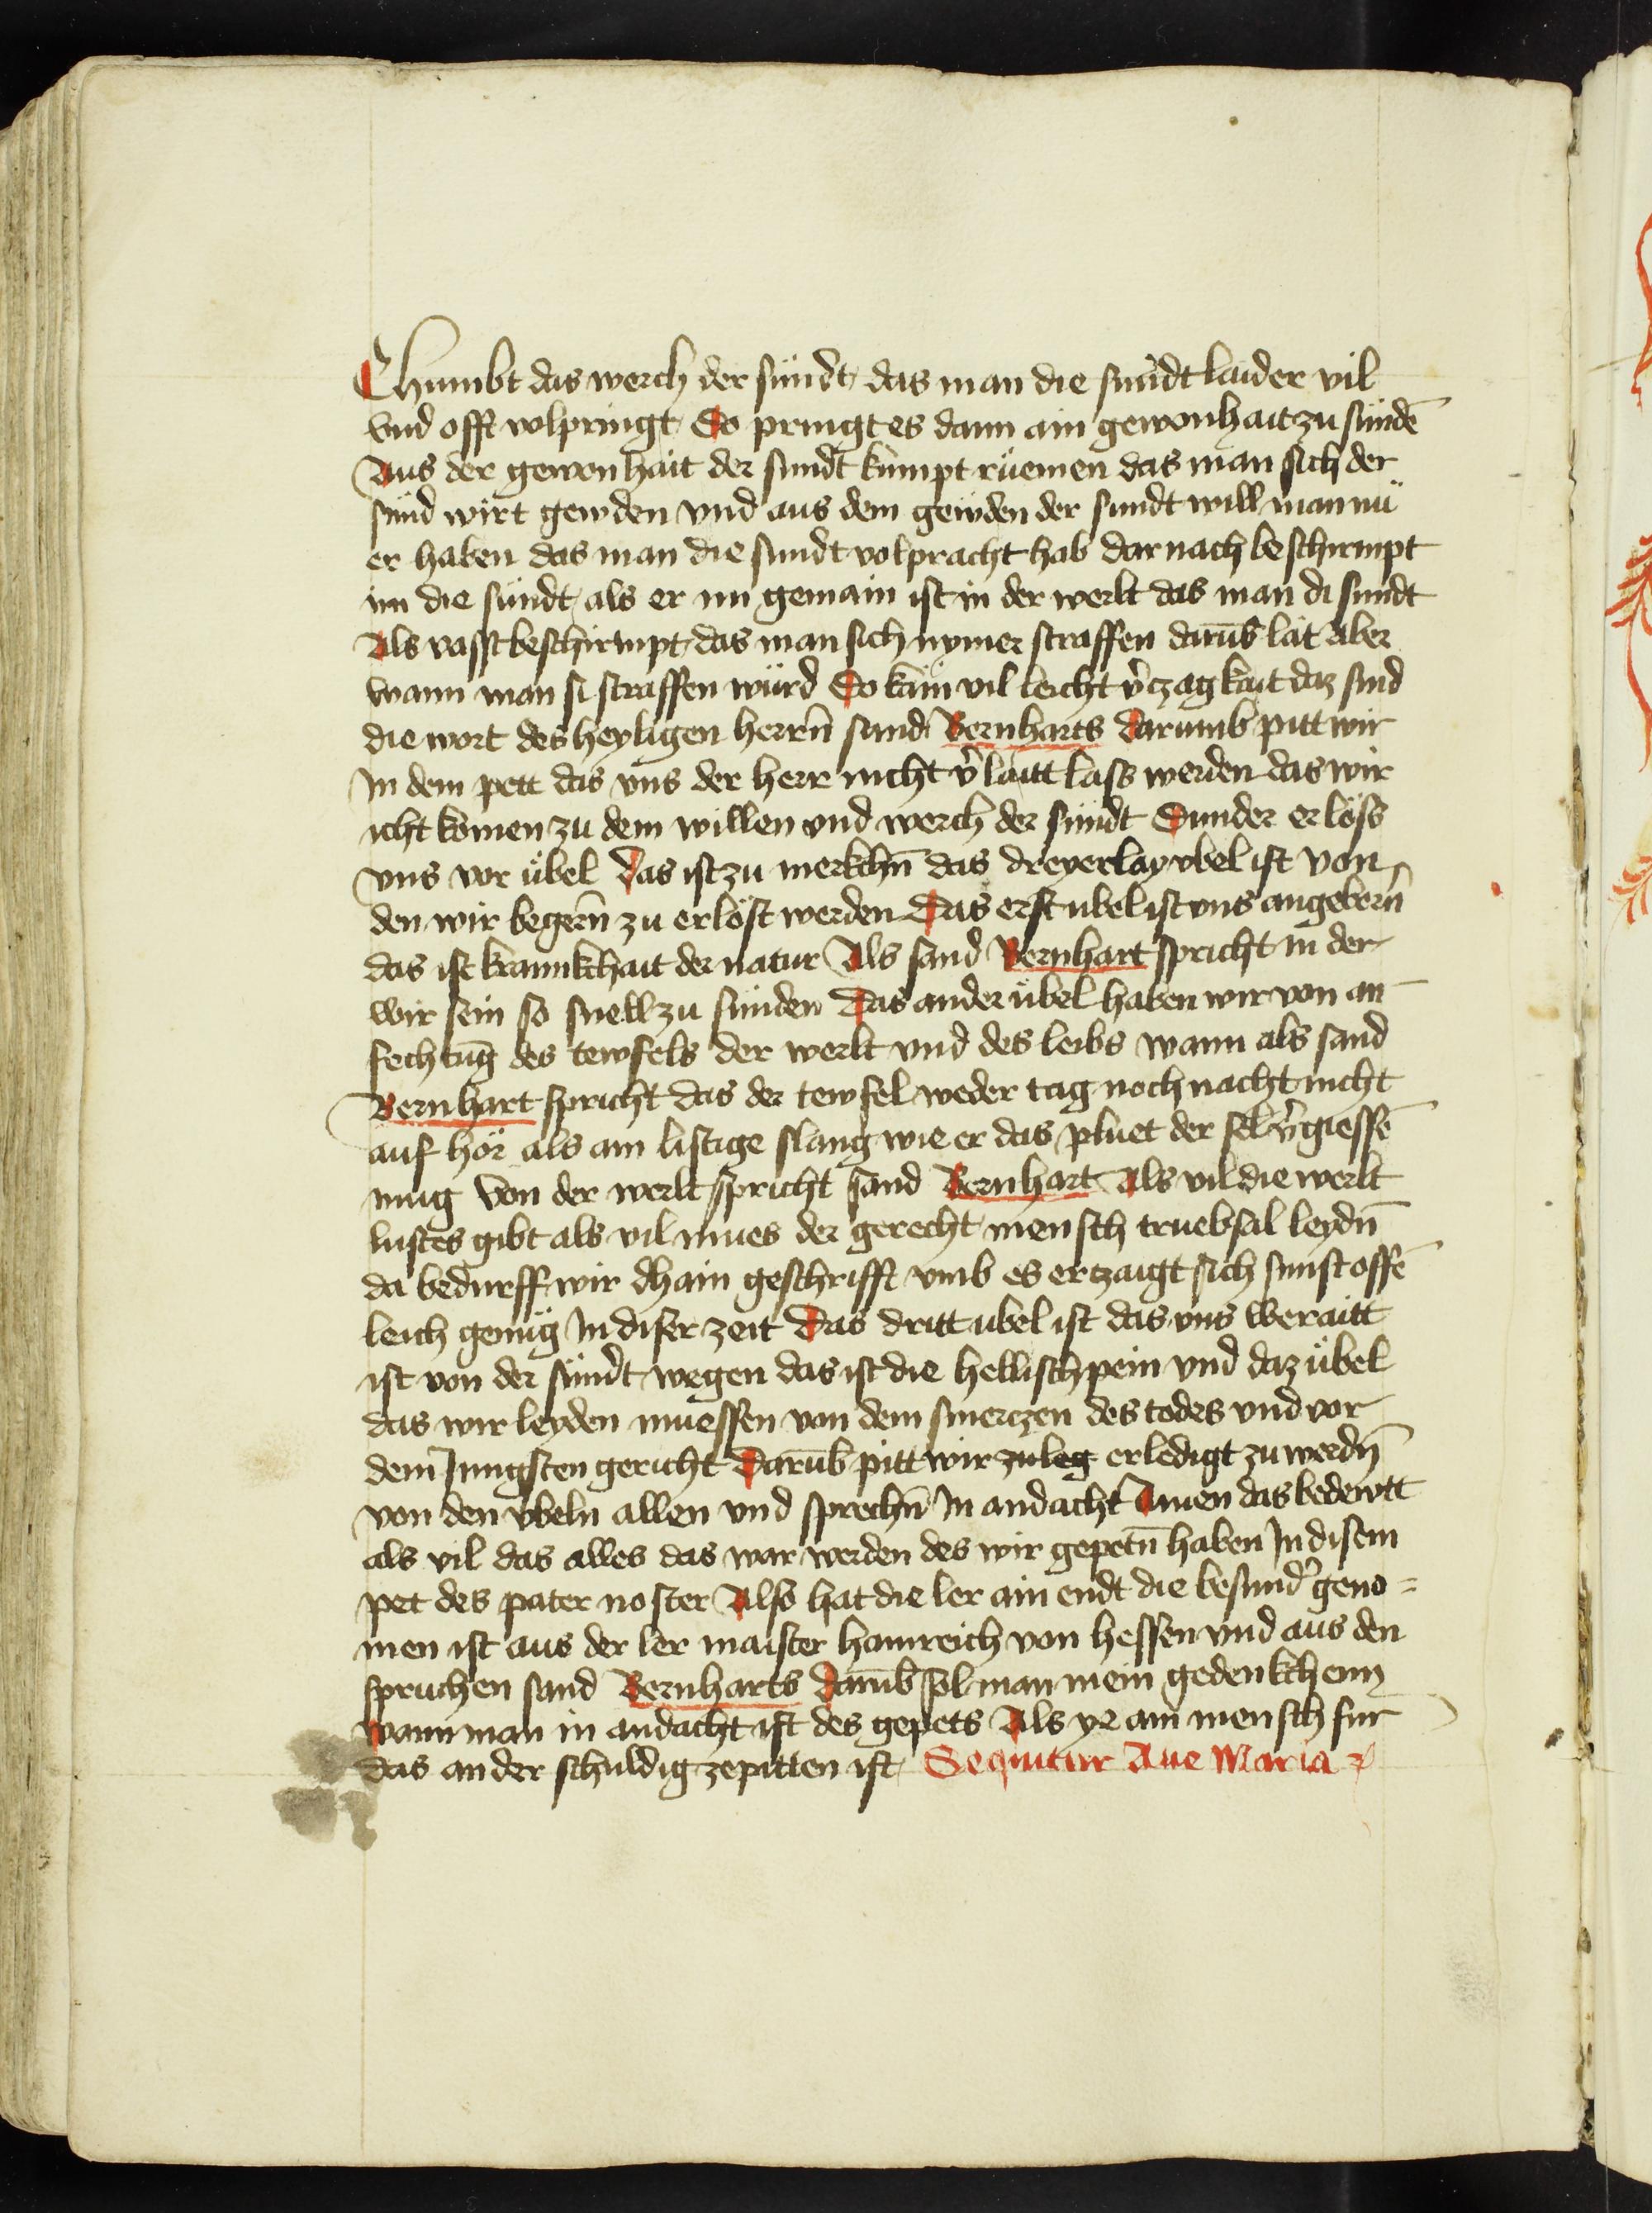 Chumbt das werch der sündt das man die sündt laider vil
vnd offt volpringt So pringt es dann ain gewonhait zu sündē
Aus der gewonhait der sundt kumpt rüemen das man sich der
sünd wirt gewden vnd aus dem gewden der sundt will man nü
er haben das man die sundt volpracht hab darnach beschirmpt
im die sündt als er nu gemain ist in der werlt das man di sundt
Als vasst beschirmpt das man sich nymer straffen darūb lät Aber
wann man si straffen würd So kam vil leicht v̄czagkait daz sind
die wort des heyligen herrn̄ sand Bernharts Darumb pitt wir
In dem pett das vns der herr nicht v̄laitt lass werden das wir
icht komen zu dem willen vnd werch der sündt Sunder erlöss
vns vor übel Das ist zu merkchn̄ das dreyerlay vbel ist von
den wir begern̄ zu erlöst werden Das erst ubel ist vns angeborn̄
das ist krannkchait der natur Als sand Bernhart spricht in der
wir sein so snell zu sünden Das ander übel haben wir von an
fechtūg des tewfels der werlt vnd des leibs wann als sand
Bernhart spricht das der tewfel weder tag noch nacht nicht
auf hör als ain listige slang wie er das pluet der sel v̄giessē
mug Von der werlt spricht sand Bernhart Als vil die werlt
lustes gibt als vil mues der gerecht mensch truebsal leydn̄
da bedurff wir dhain geschrifft vmb es erczaigt sich sunst offē
leich genüg In diser zeit Das dritt ubel ist das vns beraitt
ist von der sündt wegen das ist die hellisch pein vnd daz übel
das wir leyden muessen von dem smerczen des todes vnd vor
dem Jungsten gericht Darūb pitt wir zuleg erledigt zu werdn̄
von den vbeln allen vnd sprechn̄ In andacht Amen das bedewtt
als vil das alles das war werden des wir gepetn̄ haben In disem
pet des pater noster Also hat die ler ain endt die besundˀ geno=
men ist aus der ler maister hainreich von hessen vnd aus den
spruchen sand Bernharts Darūb sol man mein gedenkchenn
wann man in andacht ist des gepets Als ye ain mensch fur
das ander schuldig ze pitten ist Sequitur Aue Maria